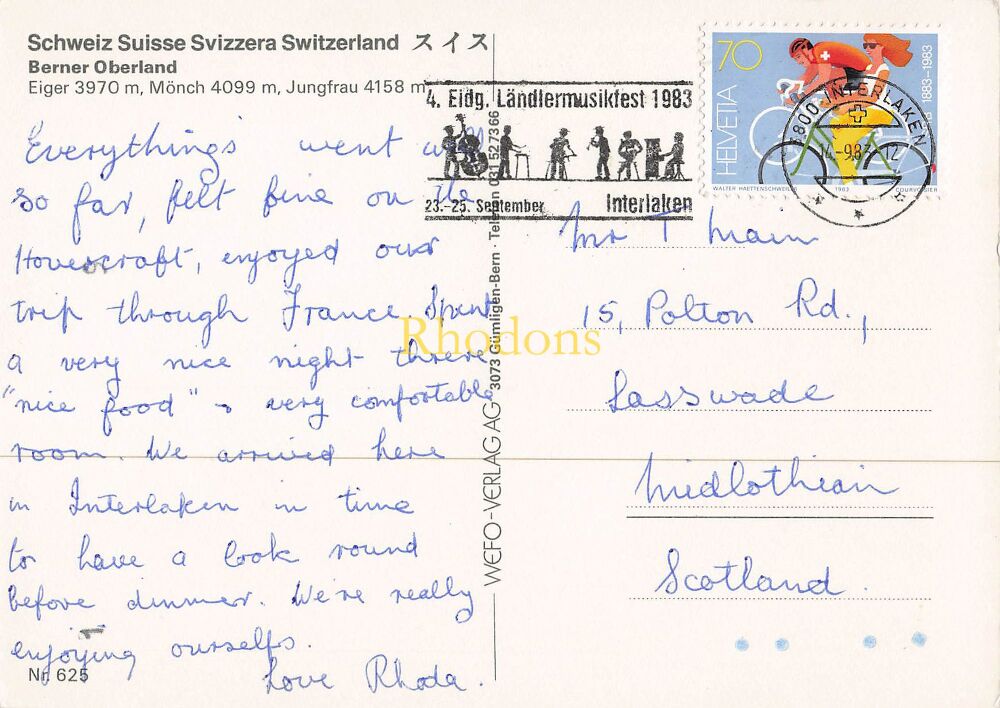 Schweiz Suisse Svizzera Switzerland スイス
Berner Oberland
Eiger 3970 m, Mönch 4099 m, Jungfrau 4158 m
4. Eidg. Ländlermusikfest 1983
23.-25. September Interlaken
70
HELVETIA
1883-1983
WALTER HAETTENSCHWEILER 1983 COURVOISIER
3800 INTERLAKEN
Everythings went well
so far, felt fine on the
Hovercraft, enjoyed our
trip through France. Spent
a very nice night there
"nice food" & very comfortable
room. We arrived here
in Interlaken in time
to have a look round
before dinner. We're really
enjoying ourselfs.
Love Rhoda.
Nr. 625
WEFO-VERLAG AG 3073 Gümligen-Bern · Telefon 031 52 73 66
Mr T Main
15, Polton Rd.,
Lasswade
Midlothian
Scotland.
Rhodons